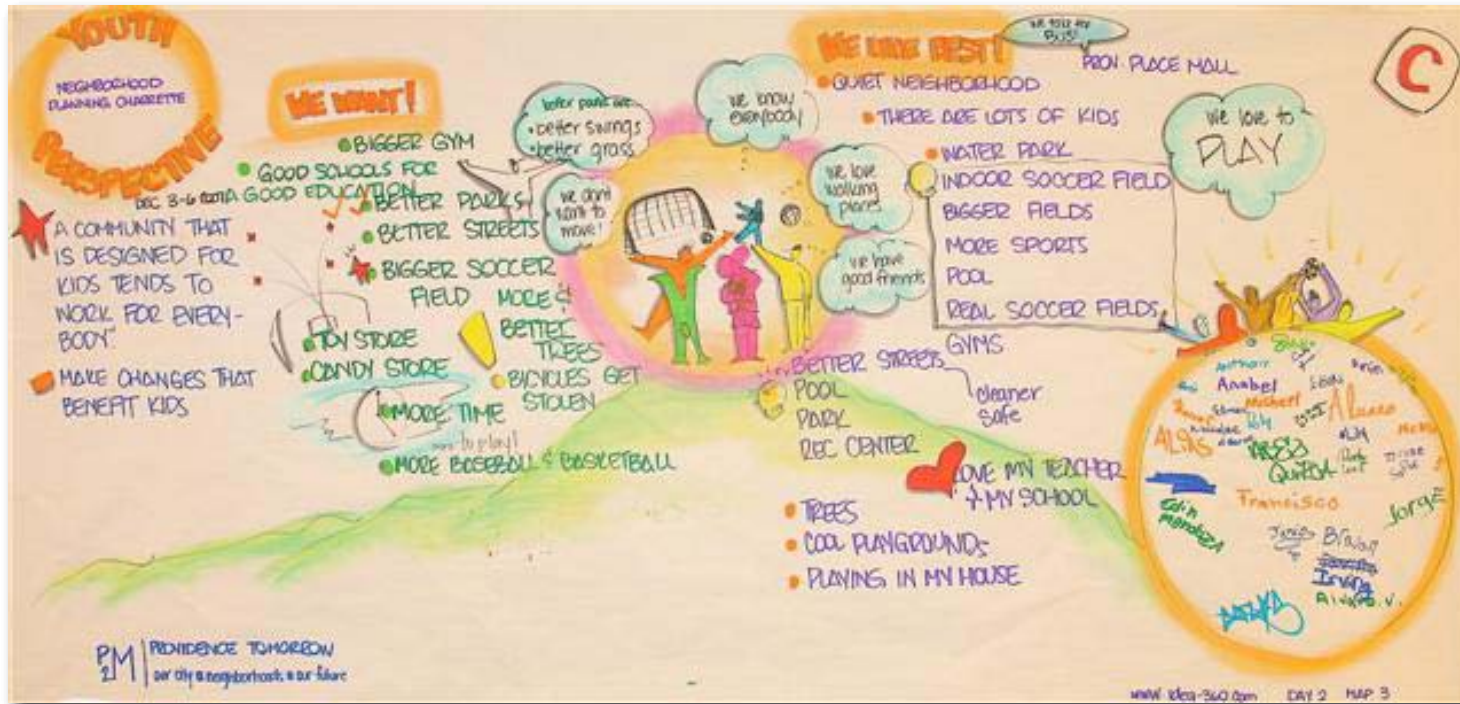 YOUTH
NEIGHBORHOOD
PLANNING CHARRETTE
PERSPECTIVE
DEC 3-6
A COMMUNITY THAT
IS DESIGNED FOR
KIDS TENDS TO
WORK FOR EVERY-
BODY."
MAKE CHANGES THAT
BENEFIT KIDS
WE WANT!
BIGGER GYM
GOOD SCHOOLS FOR
A GOOD EDUCATION
BETTER PARKS
BETTER STREETS
BIGGER SOCCER
FIELD
MORE &
BETTER
TREES
TOY STORE
CANDY STORE
BICYCLES GET
STOLEN
MORE TIME
to play!
MORE BASEBALL & BASKETBALL
better parks are
• better swings
• better grass
we don't
want to
move!
we know
everybody
we love
walking
places
we have
good friends
WE LIKE BEST!
BUS!
PROV. PLACE MALL
QUIET NEIGHBORHOOD
THERE ARE LOTS OF KIDS
WATER PARK
INDOOR SOCCER FIELD
BIGGER FIELDS
MORE SPORTS
POOL
REAL SOCCER FIELDS
GYMS
we love to
PLAY
BETTER STREETS
cleaner
safe
POOL
PARK
REC CENTER
LOVE MY TEACHER
& MY SCHOOL
TREES
COOL PLAYGROUNDS
PLAYING IN MY HOUSE
C
Anthony
Anabel
Michael
Alvaro
Francisco
Jorge
Edin
Mendoza
Brayan
Irving
Alvaro.V.
P2M
PROVIDENCE TOMORROW
our city our neighborhoods our future
www.idea-360.com
DAY 2 MAP 3